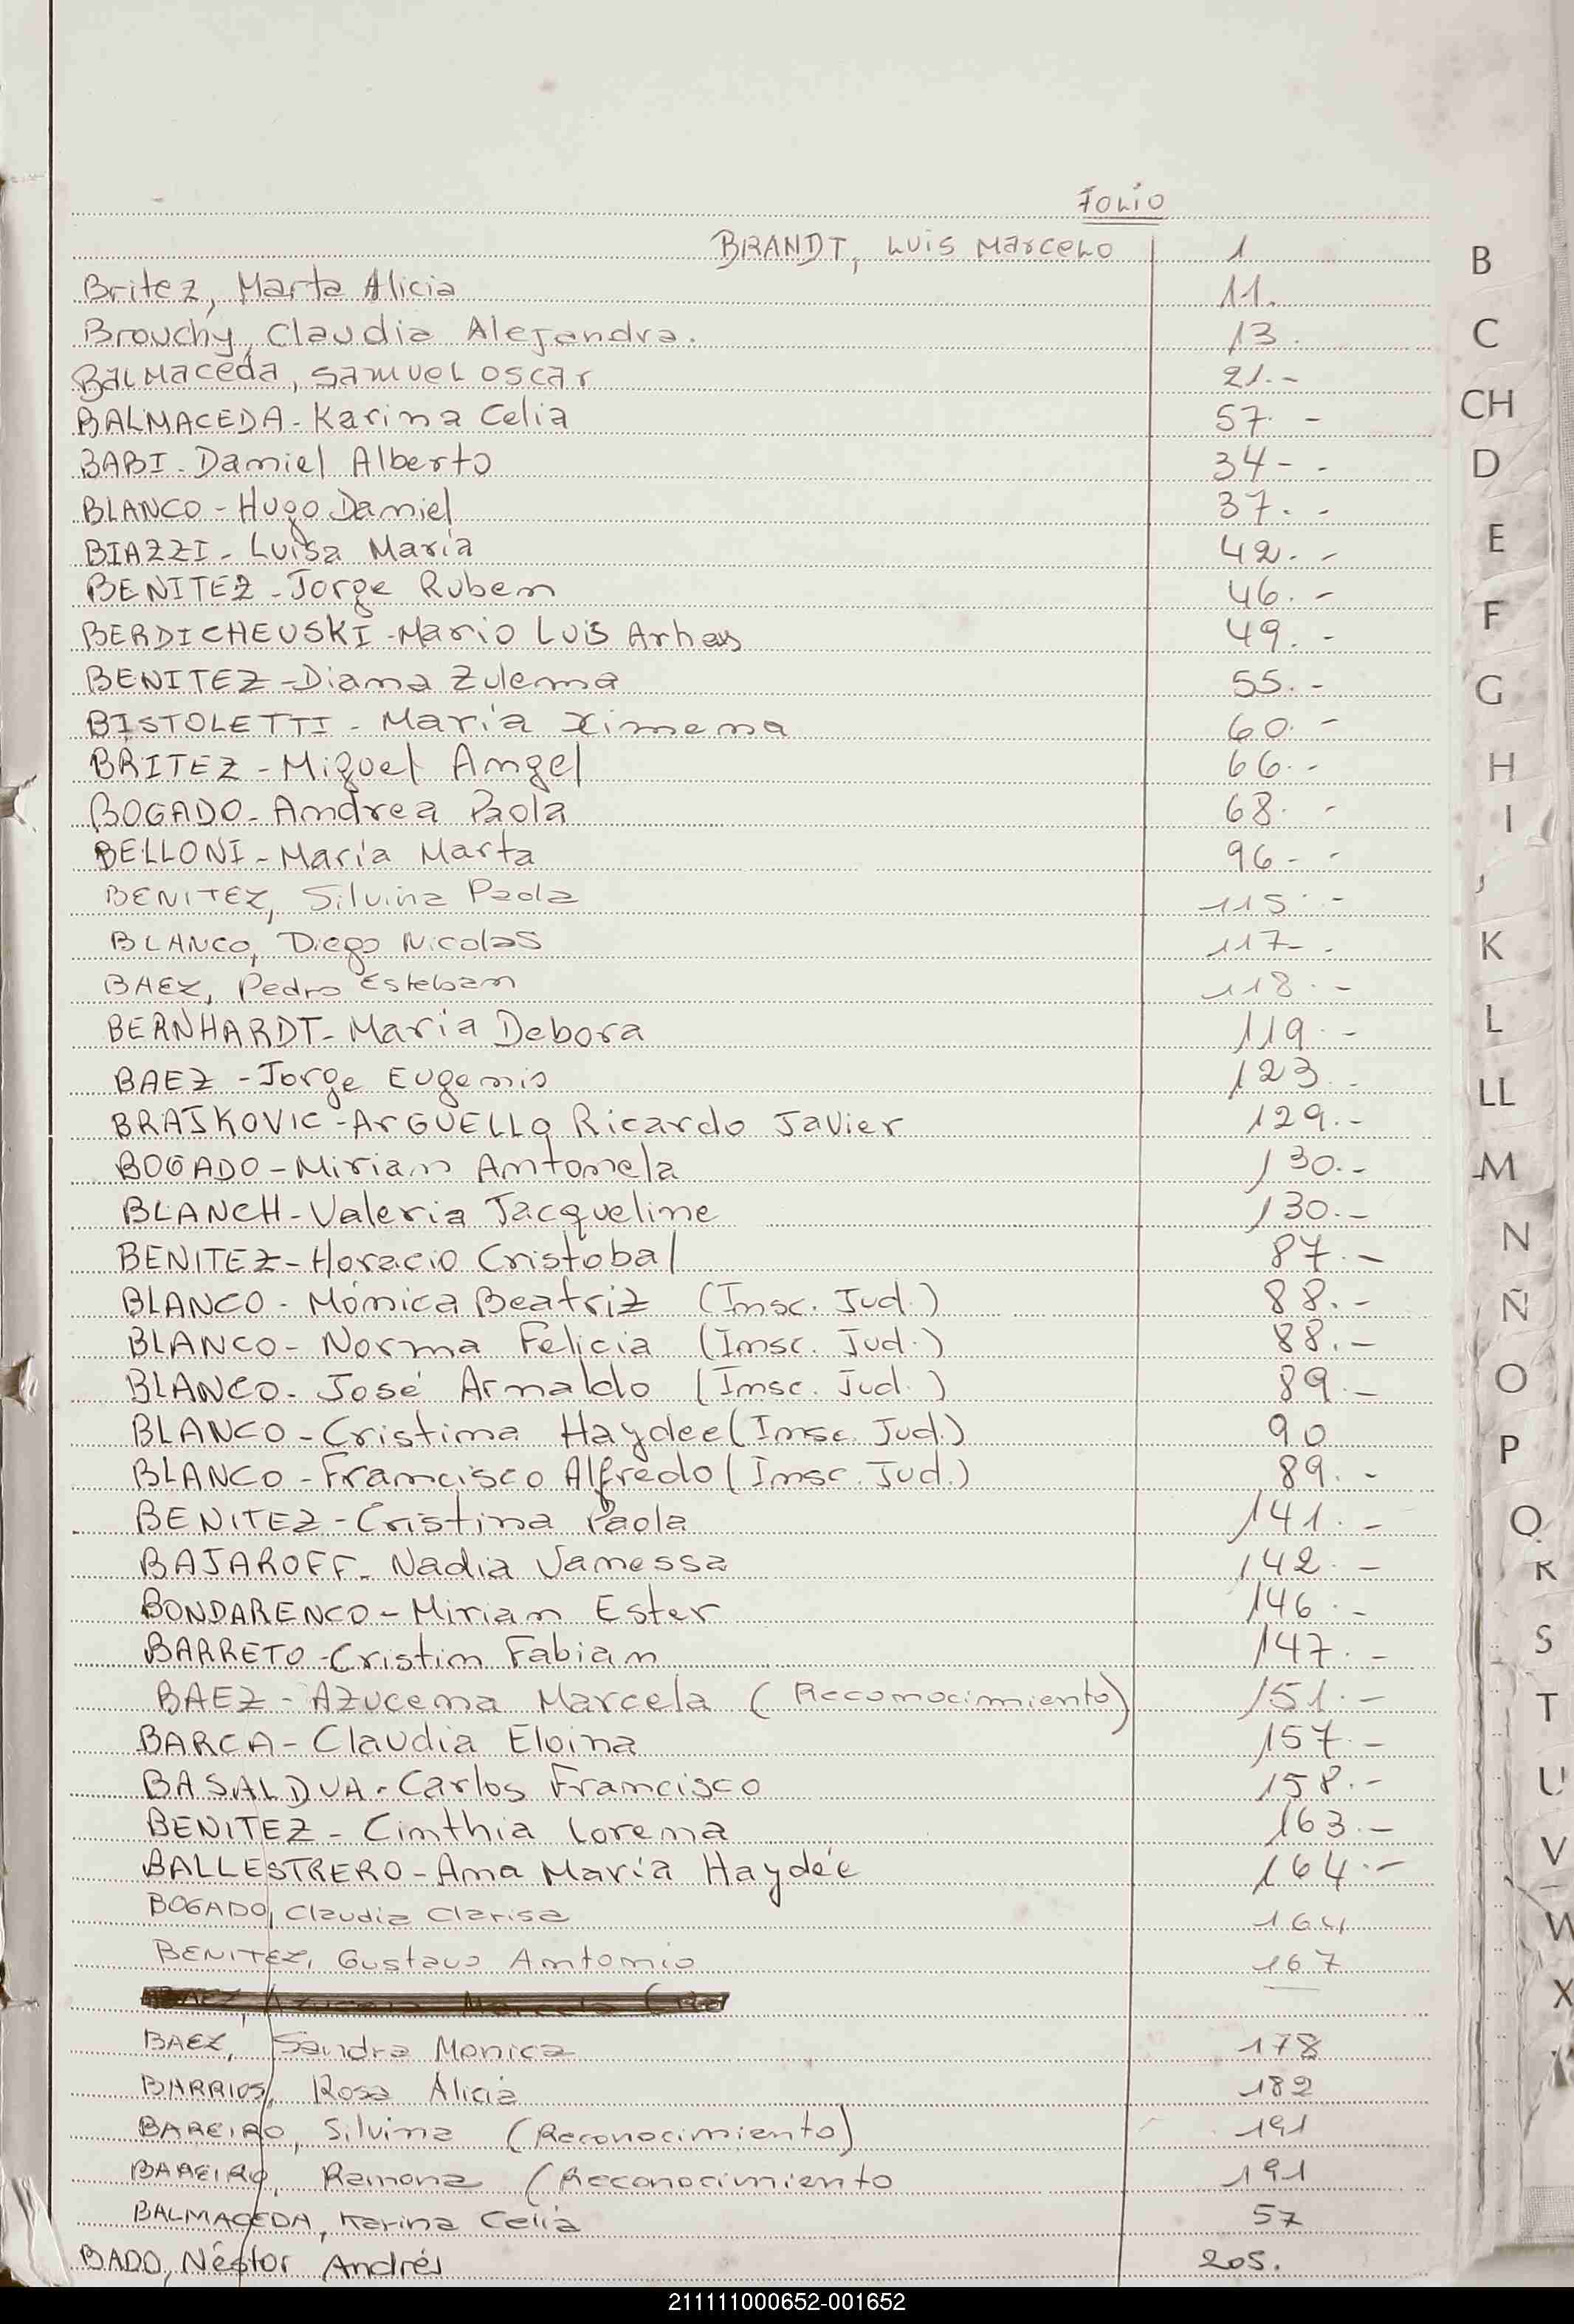 FOLIO
BRANDT, LUIS MARCELO 1
Britez, Marta Alicia 11.
Brouchy, Claudia Alejandra. 13.
BALMACEDA, SAMUEL OSCAR 21.-
BALMACEDA - Karina Celia 57. -
BABI - Daniel Alberto 34- -
BLANCO - Hugo Daniel 37. -
BIAZZI - Luisa María 42. -
BENITEZ - Jorge Ruben 46. -
BERDICHEUSKI - Mario Luis 49. -
BENITEZ - Diana Zulema 55. -
BISTOLETTI - María Ximena 60. -
BRITEZ - Miguel Angel 66. -
BOGADO - Andrea Paola 68. -
BELLONI - María Marta 96 - -
BENITEZ, Silvina Paola 115. -
BLANCO, Diego Nicolas 117- -
BAEZ, Pedro Esteban 118. -
BERNHARDT - María Debora 119. -
BAEZ - Jorge Eugenio 123. -
BRAJKOVIC - ARGUELLO Ricardo Javier 129. -
BOGADO - Miriam Antonela 130. -
BLANCH - Valeria Jacqueline 130. -
BENITEZ - Horacio Cristobal 87. -
BLANCO - Mónica Beatriz (Insc. Jud.) 88. -
BLANCO - Norma Felicia (Insc. Jud.) 88. -
BLANCO - José Arnaldo (Insc. Jud.) 89. -
BLANCO - Cristina Haydee (Insc. Jud.) 90
BLANCO - Francisco Alfredo (Insc. Jud.) 89. -
BENITEZ - Cristina Paola 141. -
BAJAROFF - Nadia Vanessa 142. -
BONDARENCO - Miriam Ester 146. -
BARRETO - Cristin Fabian 147. -
BAEZ - Azucena Marcela (Reconocimiento) 151. -
BARCA - Claudia Eloina 157. -
BASALDUA - Carlos Francisco 158. -
BENITEZ - Cinthia Lorena 163. -
BALLESTRERO - Ana María Haydée 164. -
BOGADO, Claudia Clarisa 164
BENITEZ, Gustavo Antonio 167
BAEZ, Sandra Monica 178
BARRIOS, Rosa Alicia 182
BAREIRO, Silvina (Reconocimiento) 191
BAREIRO, Ramona (Reconocimiento 191
BALMACEDA, Karina Celia 57
BADO, Néstor Andrés 205.
B
C
CH
D
E
F
G
H
I
J
K
L
LL
M
N
Ñ
O
P
Q
R
S
T
U
V
W
X
211111000652-001652